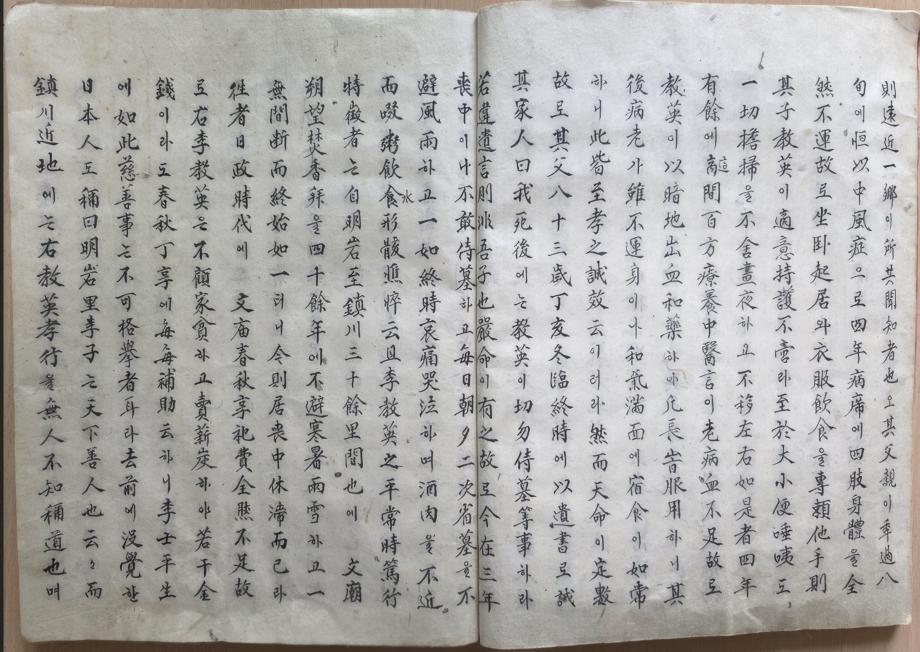 則遠近一鄉이所共聞知者也오其父親이年過八
旬에恒以中風症으로四年病席에四肢身體을全
然不運故로坐卧起居와衣服飮食을專賴他手則
其子敎英이適意持護不啻라至於大小便唾咦도
一切擔掃을不舍晝夜하고不移左右如是者四年
有餘에這間百方療養中醫言이老病血不足故로
敎英이以暗地出血和藥하야凡長皆服用하니其
後病老가雖不運身이나和氣滿面에宿食이如常
하니此皆至孝之誠效云이러라然而天命이定數
故로其父八十三歲丁亥冬臨終時에以遺書로誡
其家人曰我死後에는敎英이切勿侍墓等事하라
若違遺言則非吾子也嚴命이有之故로今在三年
喪中이나不敢侍墓하고每日朝夕二次省墓을不
避風雨하고一如終時哀痛哭泣하며酒肉을不近
而啜粥飮水食形骸憔悴云且李敎英之平常時篤行
特徵者는自明岩至鎭川三十餘里間也에 文廟
朔望焚香拜을四十餘年에不避寒暑雨雪하고一
無間断而終始如一러니今則居喪中休滯而已라
徃者日政時代에 文庙春秋享祀費全然不足故
로右李敎英은不顧家貧하고賣薪炭하야若干金
錢이라도春秋丁享에每每補助云하니李士平生
에如此慈善事는不可格擧者耳라去前에沒覺한
日本人도稱曰明岩里李子는天下善人也云々而
鎭川近地에는右敎英孝行을無人不知稱道也며